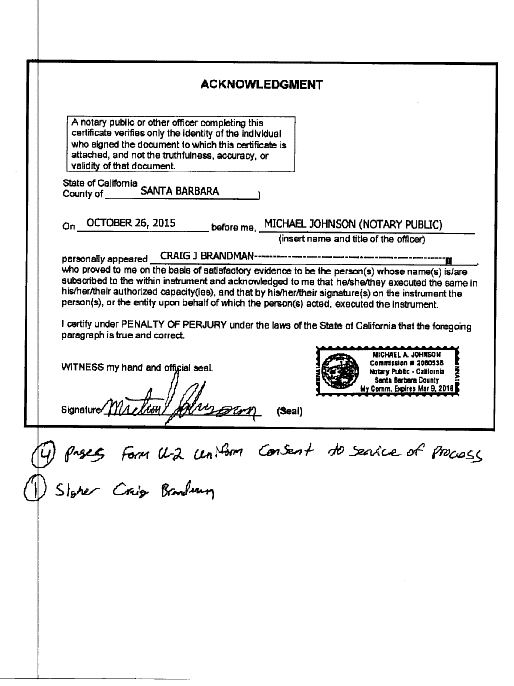 ACKNOWLEDGMENT
A notary public or other officer completing this
certificate verifies only the identity of the individual
who signed the document to which this certificate is
attached, and not the truthfulness, accuracy, or
validity of that document.
State of California
County of SANTA BARBARA )
On OCTOBER 26, 2015 before me, MICHAEL JOHNSON (NOTARY PUBLIC)
(insert name and title of the officer)
personally appeared CRAIG J BRANDMAN
who proved to me on the basis of satisfactory evidence to be the person(s) whose name(s) is/are
subscribed to the within instrument and acknowledged to me that he/she/they executed the same in
his/her/their authorized capacity(ies), and that by his/her/their signature(s) on the instrument the
person(s), or the entity upon behalf of which the person(s) acted, executed the instrument.
I certify under PENALTY OF PERJURY under the laws of the State of California that the foregoing
paragraph is true and correct.
WITNESS my hand and official seal.
MICHAEL A. JOHNSON
Commission # 2060538
Notary Public - California
Santa Barbara County
My Comm. Expires Mar 9, 2018
Signature Michael Johnson (Seal)
4 pages Form U-2 Uniform Consent to Service of Process
1 Signer Craig Brandman